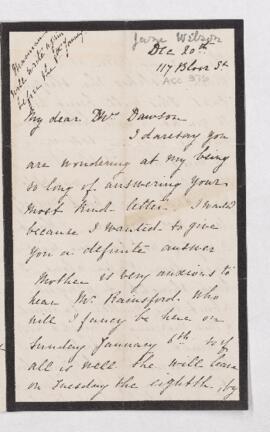 Jane Wilson
Mamma
will write again
before the
Dec 20th
117 Bloor St
ACC 976
My dear Mrs Dawson
I daresay you
are wondering at my being
so long of answering your
most kind letter. I waited
because I wanted to give
you a definite answer
Mother is very anxious to
hear Mr Rainsford. Who
will I fancy be here on
Sunday January 6th so if
all is well she will leave
on Tuesday the eighth, by